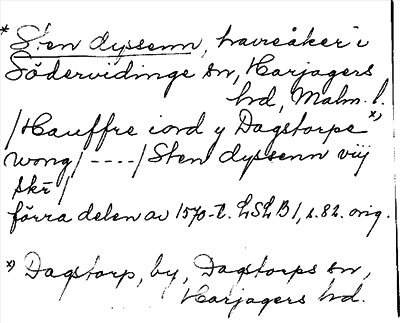 * Sten dyssenn, havreåker i
Södervidinge sn, Harjagers
hd, Malm. l.
/Hauffre iord y Dagstorpe x)
wong/----/Sten dyssenn vij
skr/
förra delen av 1570-t. LSLB 1, s. 82. orig.
x) Dagstorp, by, Dagstorps sn,
Harjagers hd.